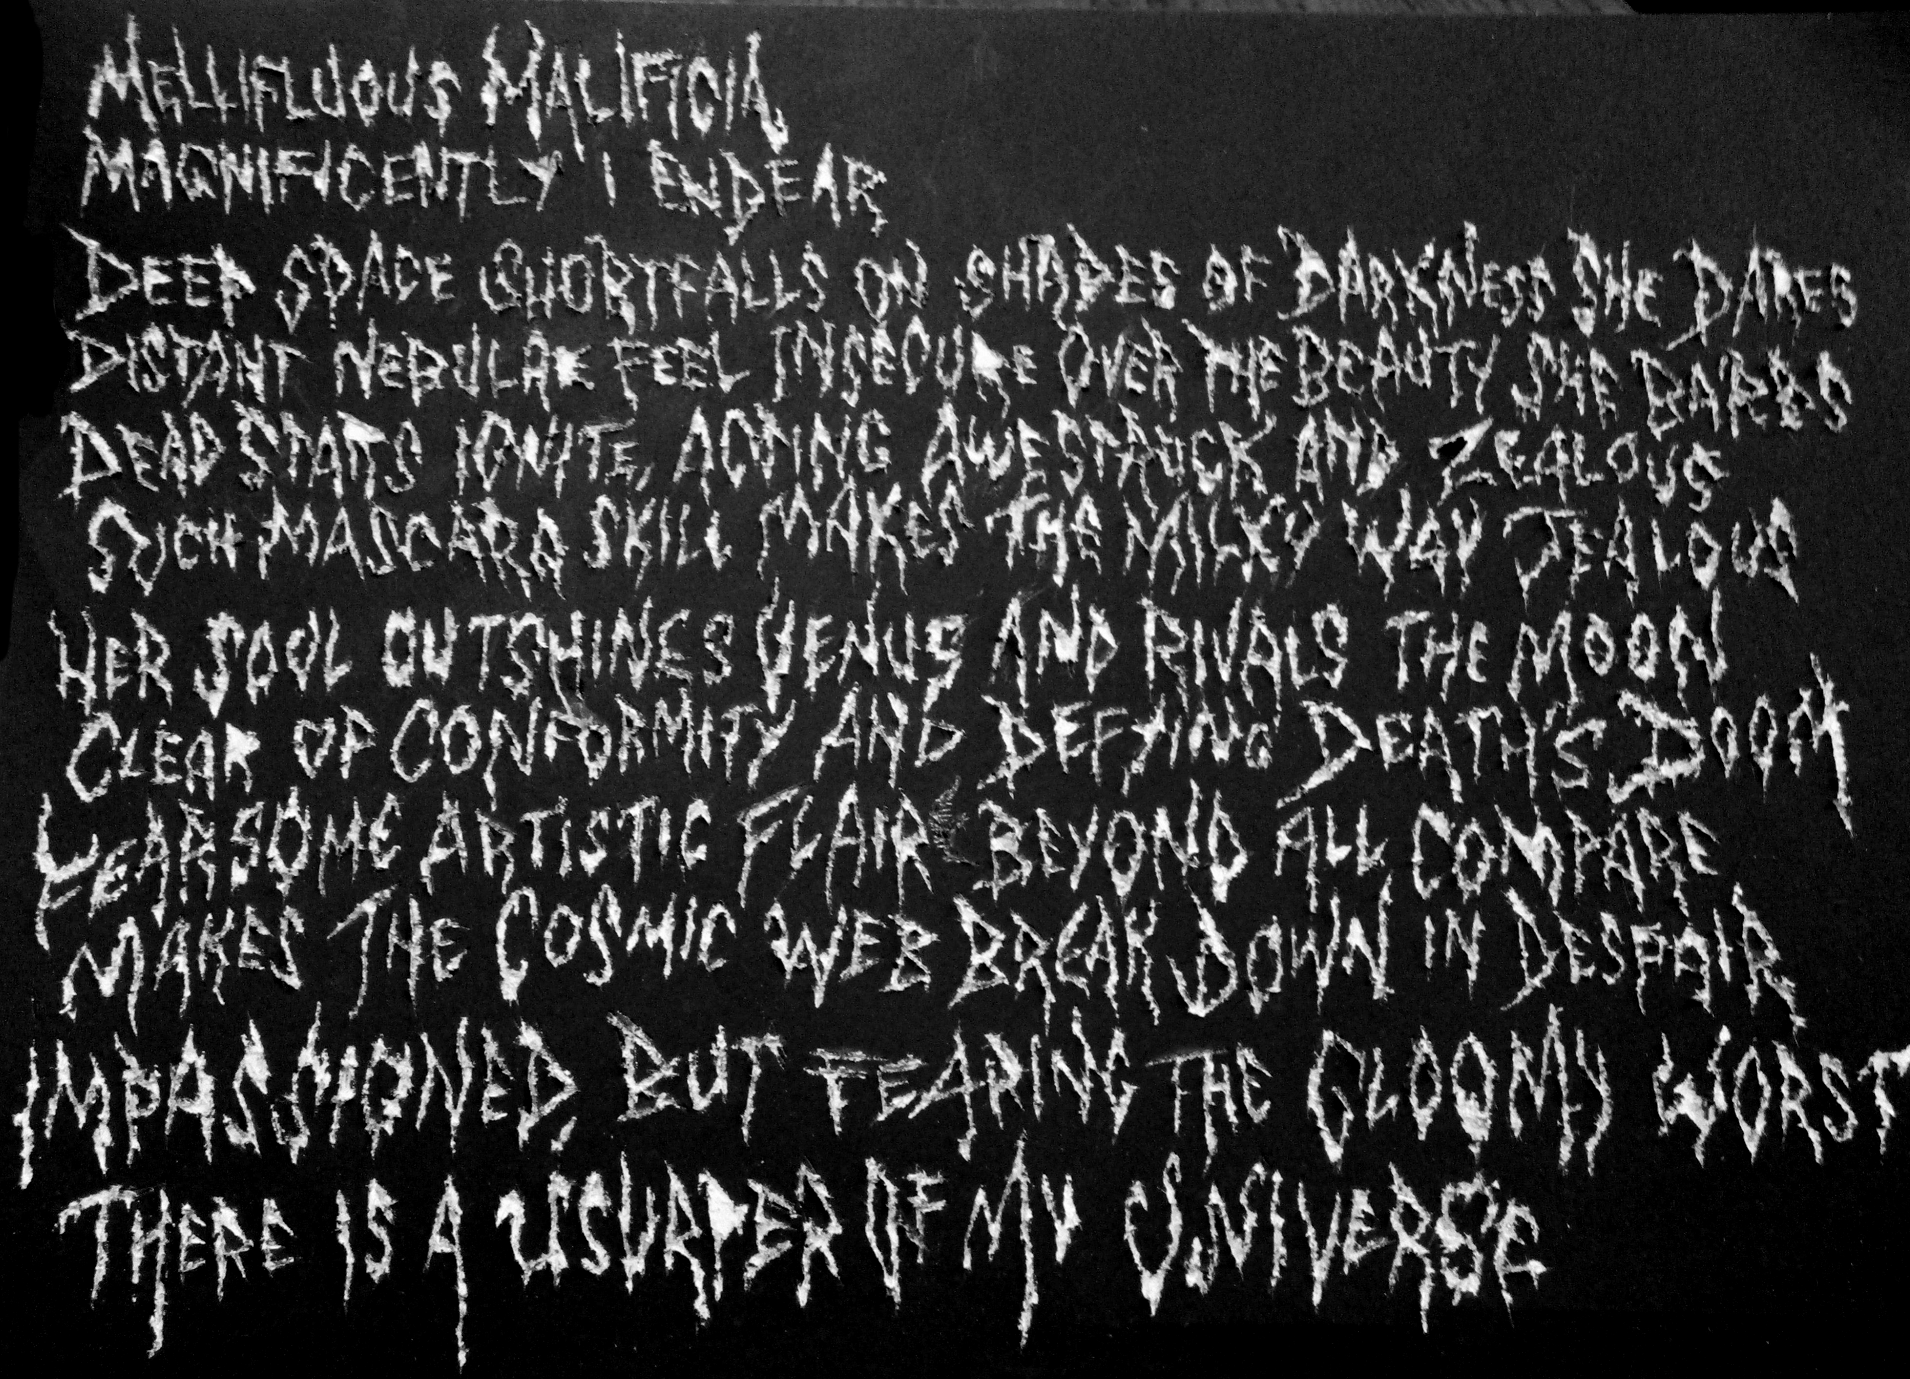 Mellifluous Malificia,
Magnificently I Endear
Deep Space Shortfalls on Shades of Darkness She Dares
Distant Nebulae Feel Insecure Over the Beauty She Bares
Dead Stars Ignite, Acting Awestruck and Zealous
Such Mascara Skill Makes the Milky Way Jealous
Her Soul Outshines Venus and Rivals the Moon
Clear of Conformity and Defying Death's Doom
Fearsome Artistic Flair Beyond All Compare
Makes The Cosmic Web Break Down in Despair
Impassioned, But Fearing The Gloomy Worst
There is a Usurper of My Universe